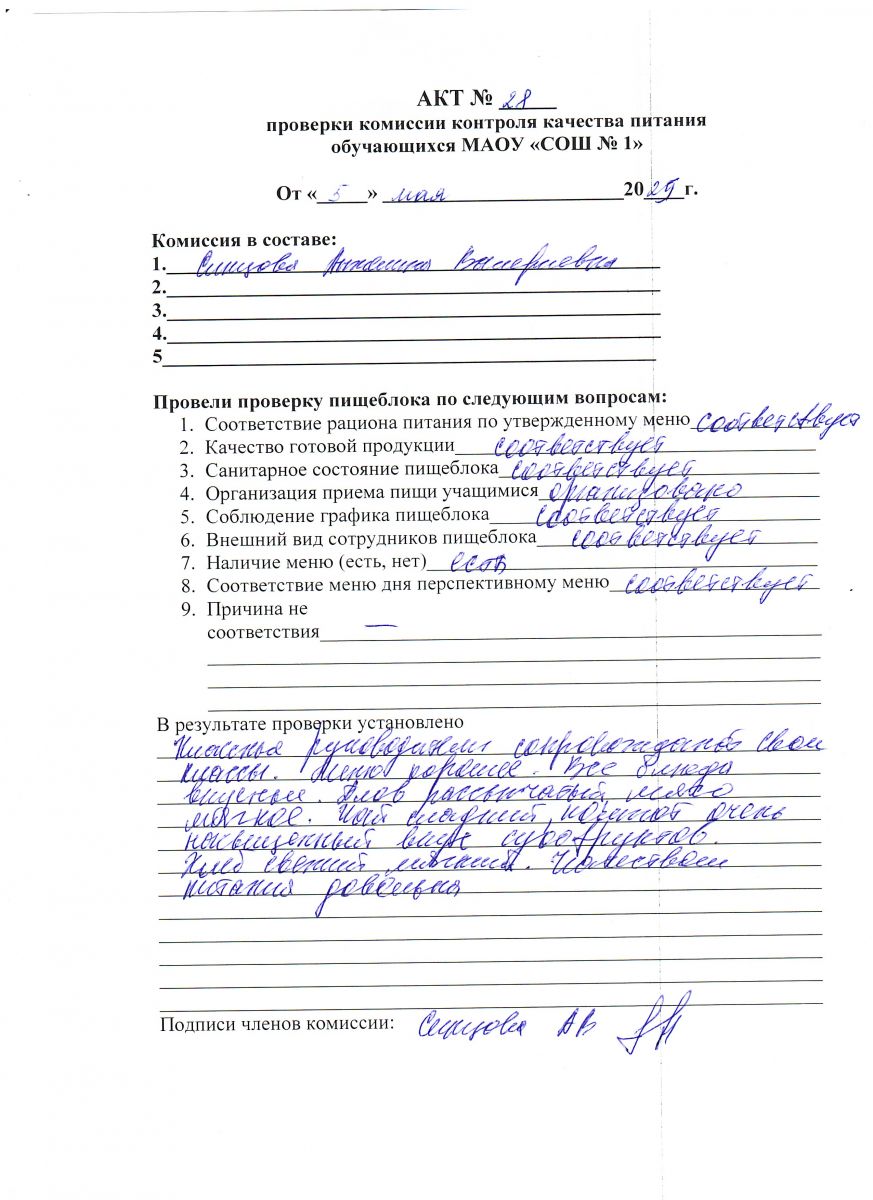 АКТ № 28
проверки комиссии контроля качества питания
обучающихся МАОУ «СОШ № 1»
От « 5 » мая 2025 г.
Комиссия в составе:
1. Синцова Анжелика Валериевна
2.
3.
4.
5
Провели проверку пищеблока по следующим вопросам:
1. Соответствие рациона питания по утвержденному меню соответствует
2. Качество готовой продукции соответствует
3. Санитарное состояние пищеблока соответствует
4. Организация приема пищи учащимися организовано
5. Соблюдение графика пищеблока соответствует
6. Внешний вид сотрудников пищеблока соответствует
7. Наличие меню (есть, нет) есть
8. Соответствие меню дня перспективному меню соответствует
9. Причина не
соответствия —
В результате проверки установлено
Классные руководители сопровождают свои
классы. Меню хорошее. Все блюда
вкусные. Плов рассыпчатый, мясо
мягкое. Чай сладкий, компот очень
насыщенный вкус сухофруктов.
Хлеб свежий, мягкий. Качеством
питания довольна
Подписи членов комиссии: Синцова АВ